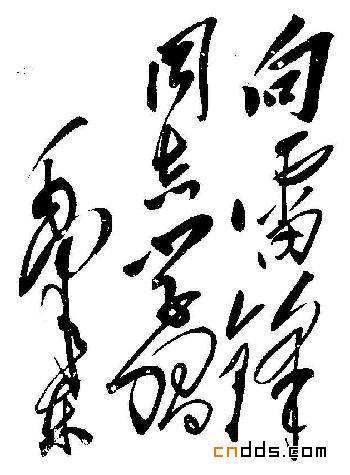 向雷锋
同志学习
毛泽东
cndds.com